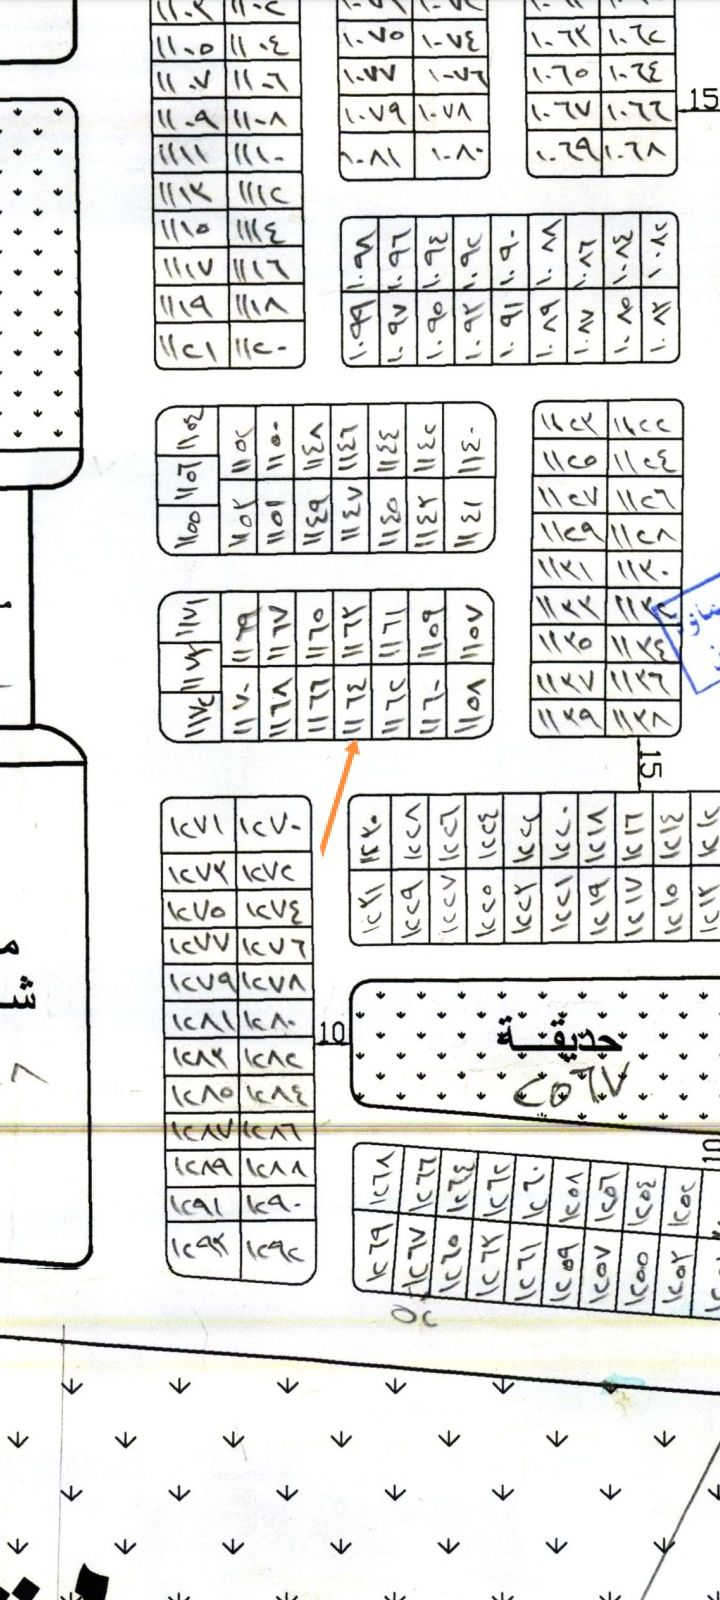 ١١٠٣ ١١٠٢
١١٠٥ ١١٠٤
١١٠٧ ١١٠٦
١١٠٩ ١١٠٨
١١١١ ١١١٠
١١١٣ ١١١٢
١١١٥ ١١١٤
١١١٧ ١١١٦
١١١٩ ١١١٨
١١٢١ ١١٢٠
١٠٧٥ ١٠٧٤
١٠٧٧ ١٠٧٦
١٠٧٩ ١٠٧٨
١٠٨١ ١٠٨٠
١٠٦٣ ١٠٦٢
١٠٦٥ ١٠٦٤
١٠٦٧ ١٠٦٦
١٠٦٩ ١٠٦٨
15
١٠٩٨ ١٠٩٦ ١٠٩٤ ١٠٩٢ ١٠٩٠ ١٠٨٨ ١٠٨٦ ١٠٨٤ ١٠٨٢
١٠٩٩ ١٠٩٧ ١٠٩٥ ١٠٩٣ ١٠٩١ ١٠٨٩ ١٠٨٧ ١٠٨٥ ١٠٨٣
١١٥٤
١١٥٦
١١٥٥
١١٥٢ ١١٥٠ ١١٤٨ ١١٤٦ ١١٤٤ ١١٤٢ ١١٤٠
١١٥٣ ١١٥١ ١١٤٩ ١١٤٧ ١١٤٥ ١١٤٣ ١١٤١
١١٢٣ ١١٢٢
١١٢٥ ١١٢٤
١١٢٧ ١١٢٦
١١٢٩ ١١٢٨
١١٣١ ١١٣٠
١١٣٣ ١١٣٢
١١٣٥ ١١٣٤
١١٣٧ ١١٣٦
١١٣٩ ١١٣٨
١١٧١
١١٧٣
١١٧٢
١١٦٩ ١١٦٧ ١١٦٥ ١١٦٣ ١١٦١ ١١٥٩ ١١٥٧
١١٧٠ ١١٦٨ ١١٦٦ ١١٦٤ ١١٦٢ ١١٦٠ ١١٥٨
15
١٢٧١ ١٢٧٠
١٢٧٣ ١٢٧٢
١٢٧٥ ١٢٧٤
١٢٧٧ ١٢٧٦
١٢٧٩ ١٢٧٨
١٢٨١ ١٢٨٠
١٢٨٣ ١٢٨٢
١٢٨٥ ١٢٨٤
١٢٨٧ ١٢٨٦
١٢٨٩ ١٢٨٨
١٢٩١ ١٢٩٠
١٢٩٣ ١٢٩٢
١٢٣٠ ١٢٢٨ ١٢٢٦ ١٢٢٤ ١٢٢٢ ١٢٢٠ ١٢١٨ ١٢١٦ ١٢١٤ ١٢١٢
١٢٣١ ١٢٢٩ ١٢٢٧ ١٢٢٥ ١٢٢٣ ١٢٢١ ١٢١٩ ١٢١٧ ١٢١٥ ١٢١٣
10
حديقة
٢٥٦٧
10
١٢٦٨ ١٢٦٦ ١٢٦٤ ١٢٦٢ ١٢٦٠ ١٢٥٨ ١٢٥٦ ١٢٥٤ ١٢٥٢
١٢٦٩ ١٢٦٧ ١٢٦٥ ١٢٦٣ ١٢٦١ ١٢٥٩ ١٢٥٧ ١٢٥٥ ١٢٥٣